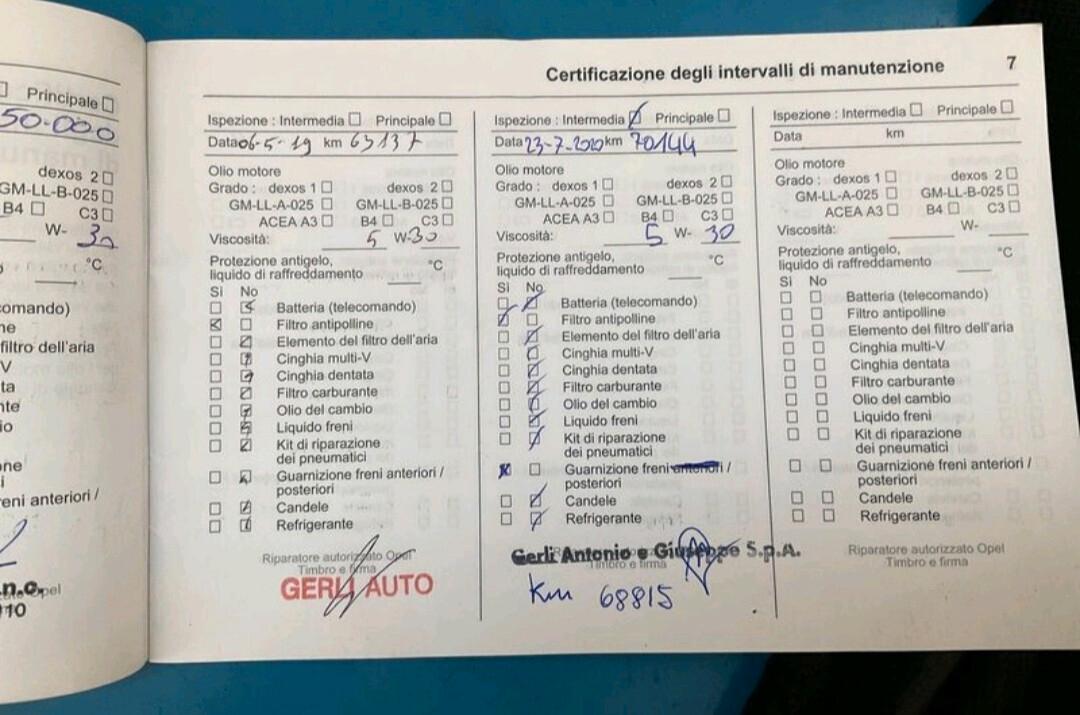 Certificazione degli intervalli di manutenzione 7
Principale
50.000
dexos 2
GM-LL-B-025
B4 C3
W- 30
°C
comando)
ne
filtro dell'aria
V
ta
nte
io
one
i
reni anteriori /
n.c.
pel
110
Ispezione : Intermedia Principale
Data 06-5-19 km 63137
Olio motore
Grado : dexos 1 dexos 2
GM-LL-A-025 GM-LL-B-025
ACEA A3 B4 C3
Viscosità: 5 W-30
Protezione antigelo,
liquido di raffreddamento °C
Sì No
Batteria (telecomando)
Filtro antipolline
Elemento del filtro dell'aria
Cinghia multi-V
Cinghia dentata
Filtro carburante
Olio del cambio
Liquido freni
Kit di riparazione
dei pneumatici
Guarnizione freni anteriori /
posteriori
Candele
Refrigerante
Riparatore autorizzato Opel
Timbro e firma
GERLI AUTO
Ispezione : Intermedia Principale
Data 23-7-2020 km 70144
Olio motore
Grado : dexos 1 dexos 2
GM-LL-A-025 GM-LL-B-025
ACEA A3 B4 C3
Viscosità: 5 W- 30
Protezione antigelo,
liquido di raffreddamento °C
Sì No
Batteria (telecomando)
Filtro antipolline
Elemento del filtro dell'aria
Cinghia multi-V
Cinghia dentata
Filtro carburante
Olio del cambio
Liquido freni
Kit di riparazione
dei pneumatici
Guarnizione freni anteriori /
posteriori
Candele
Refrigerante
Gerli Antonio e Giuseppe S.p.A.
Timbro e firma
Km 68815
Ispezione : Intermedia Principale
Data km
Olio motore
Grado : dexos 1 dexos 2
GM-LL-A-025 GM-LL-B-025
ACEA A3 B4 C3
Viscosità: W-
Protezione antigelo,
liquido di raffreddamento °C
Sì No
Batteria (telecomando)
Filtro antipolline
Elemento del filtro dell'aria
Cinghia multi-V
Cinghia dentata
Filtro carburante
Olio del cambio
Liquido freni
Kit di riparazione
dei pneumatici
Guarnizione freni anteriori /
posteriori
Candele
Refrigerante
Riparatore autorizzato Opel
Timbro e firma